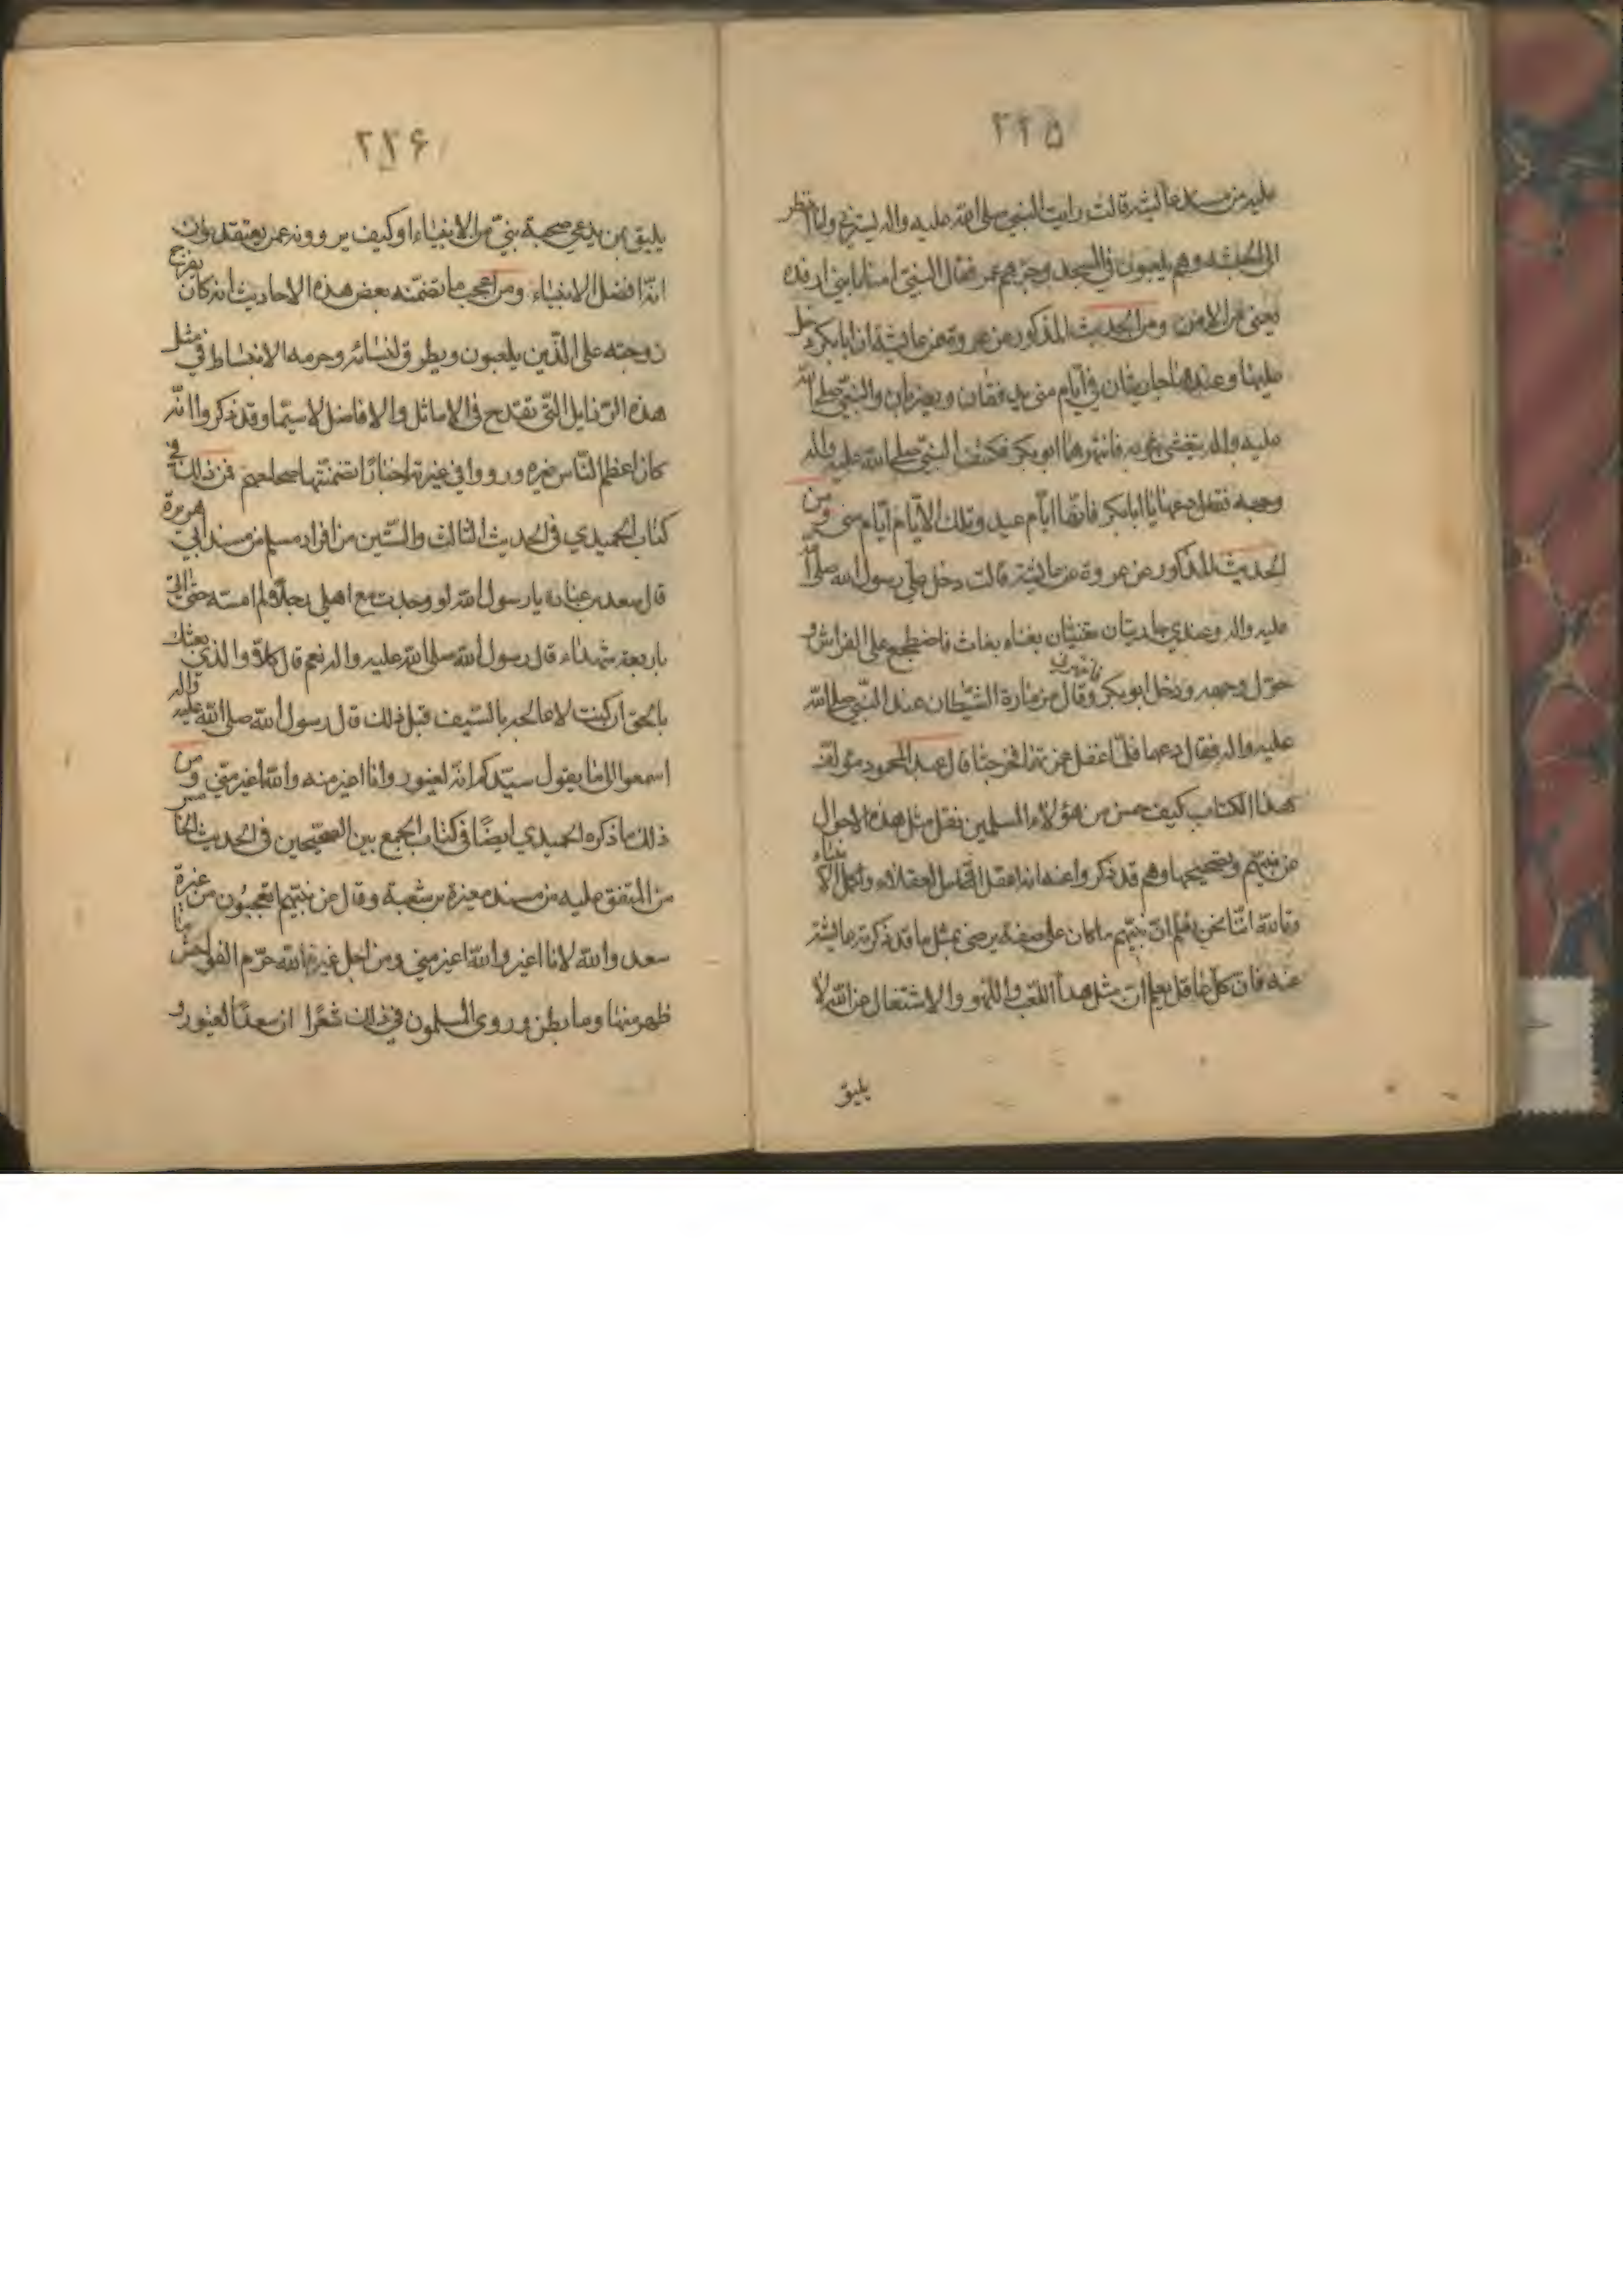 ٢٢۵
عليه من مسند عائشة قالت رايت النبي صلى الله عليه واله يسترني وانا انظر
الى الحبشة وهم يلعبون في المسجد وزجرهم عمر فقال النبي امنا يا بني ارفدة
يعني من الامن ومن الحديث المذكور عن عروة عن عايشة ان ابا بكر دخل
عليها وعندها جاريتان في ايام منى تدففان وتضربان والنبي صلى الله
عليه واله يتغشى بثوبه فانتهرهما ابو بكر فكشف النبي صلى الله عليه واله
وجهه فقال دعهما يا ابا بكر فانها ايام عيد وتلك الايام ايام منى ومن
الحديث المذكور عن عروة عن عايشة قالت دخل علي رسول الله صلى الله
عليه واله وعندي جاريتان تغنيان بغناء بغاث فاضطجع على الفراش و
حول وجهه ودخل ابو بكر فانتهرني وقال مزمارة الشيطان عند النبي صلى الله
عليه واله فقال دعهما فلما غفل غمزتهما فخرجتا قال عبد المحمود مؤلف
هذا الكتاب كيف حسن من هؤلاء المسلمين نقل مثل هذه الاحوال
عن نبيهم وتصحيحها وهم قد ذكروا عنه انه اعقل العقلاء واكمل الانبياء
وتالله اننا نحن نعلم ان نبيهم ما كان على صفة يرضى بمثل ما قد ذكرته عايشة
عنه فان كل عاقل يعلم ان مثل هذا اللعب واللهو والاشتغال عن الله لا
يليق
٢٢۶
يليق بمن يدعي صحبة نبي من الانبياء او كيف يروونه عمن يعتقدون
انه افضل الانبياء ومن اعجب ما تضمنته بعض هذه الاحاديث انه كان يفرج
زوجته على الذين يلعبون ويطرق لنسائه وحرمه الانبساط في مثل
هذه الرذايل التي تقدح في الاماثل والافاضل لا سيما وقد ذكروا انه
كان اعظم الناس غيرة ورووا في غيرته اخبارا تضمنتها صحاحهم فمن ذلك في
كتاب الحميدي في الحديث الثالث والستين من افراد مسلم من مسند ابي هريرة
قال سعد بن عبادة يا رسول الله لو وجدت مع اهلي رجلا لم امسه حتى اتي
باربعة شهداء قال رسول الله صلى الله عليه واله نعم قال كلا والذي بعثك
بالحق ان كنت لاعالجه بالسيف قبل ذلك قال رسول الله صلى الله عليه واله
اسمعوا الى ما يقول سيدكم انه لغيور وانا اغير منه والله اغير مني ومن
ذلك ما ذكره الحميدي ايضا في كتاب الجمع بين الصحيحين في الحديث الخامس
من المتفق عليه من مسند مغيرة بن شعبة وقال عن نبيهم اتعجبون من غيرة
سعد والله لانا اغير والله اغير مني ومن اجل غيرة الله حرم الفواحش ما
ظهر منها وما بطن وروى المسلمون في ذلك شعرا ان سعدا لغيور و